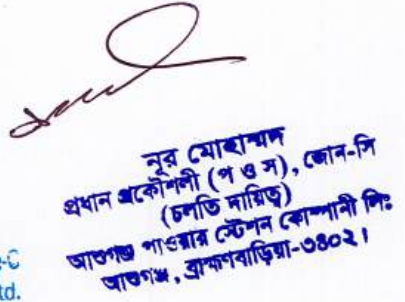 নূর মোহাম্মদ
প্রধান প্রকৌশলী (প ও স), জোন-সি
(চলতি দায়িত্ব)
আশুগঞ্জ পাওয়ার স্টেশন কোম্পানী লিঃ
আশুগঞ্জ, ব্রাহ্মণবাড়িয়া-৩৪০২।
e-C
td.